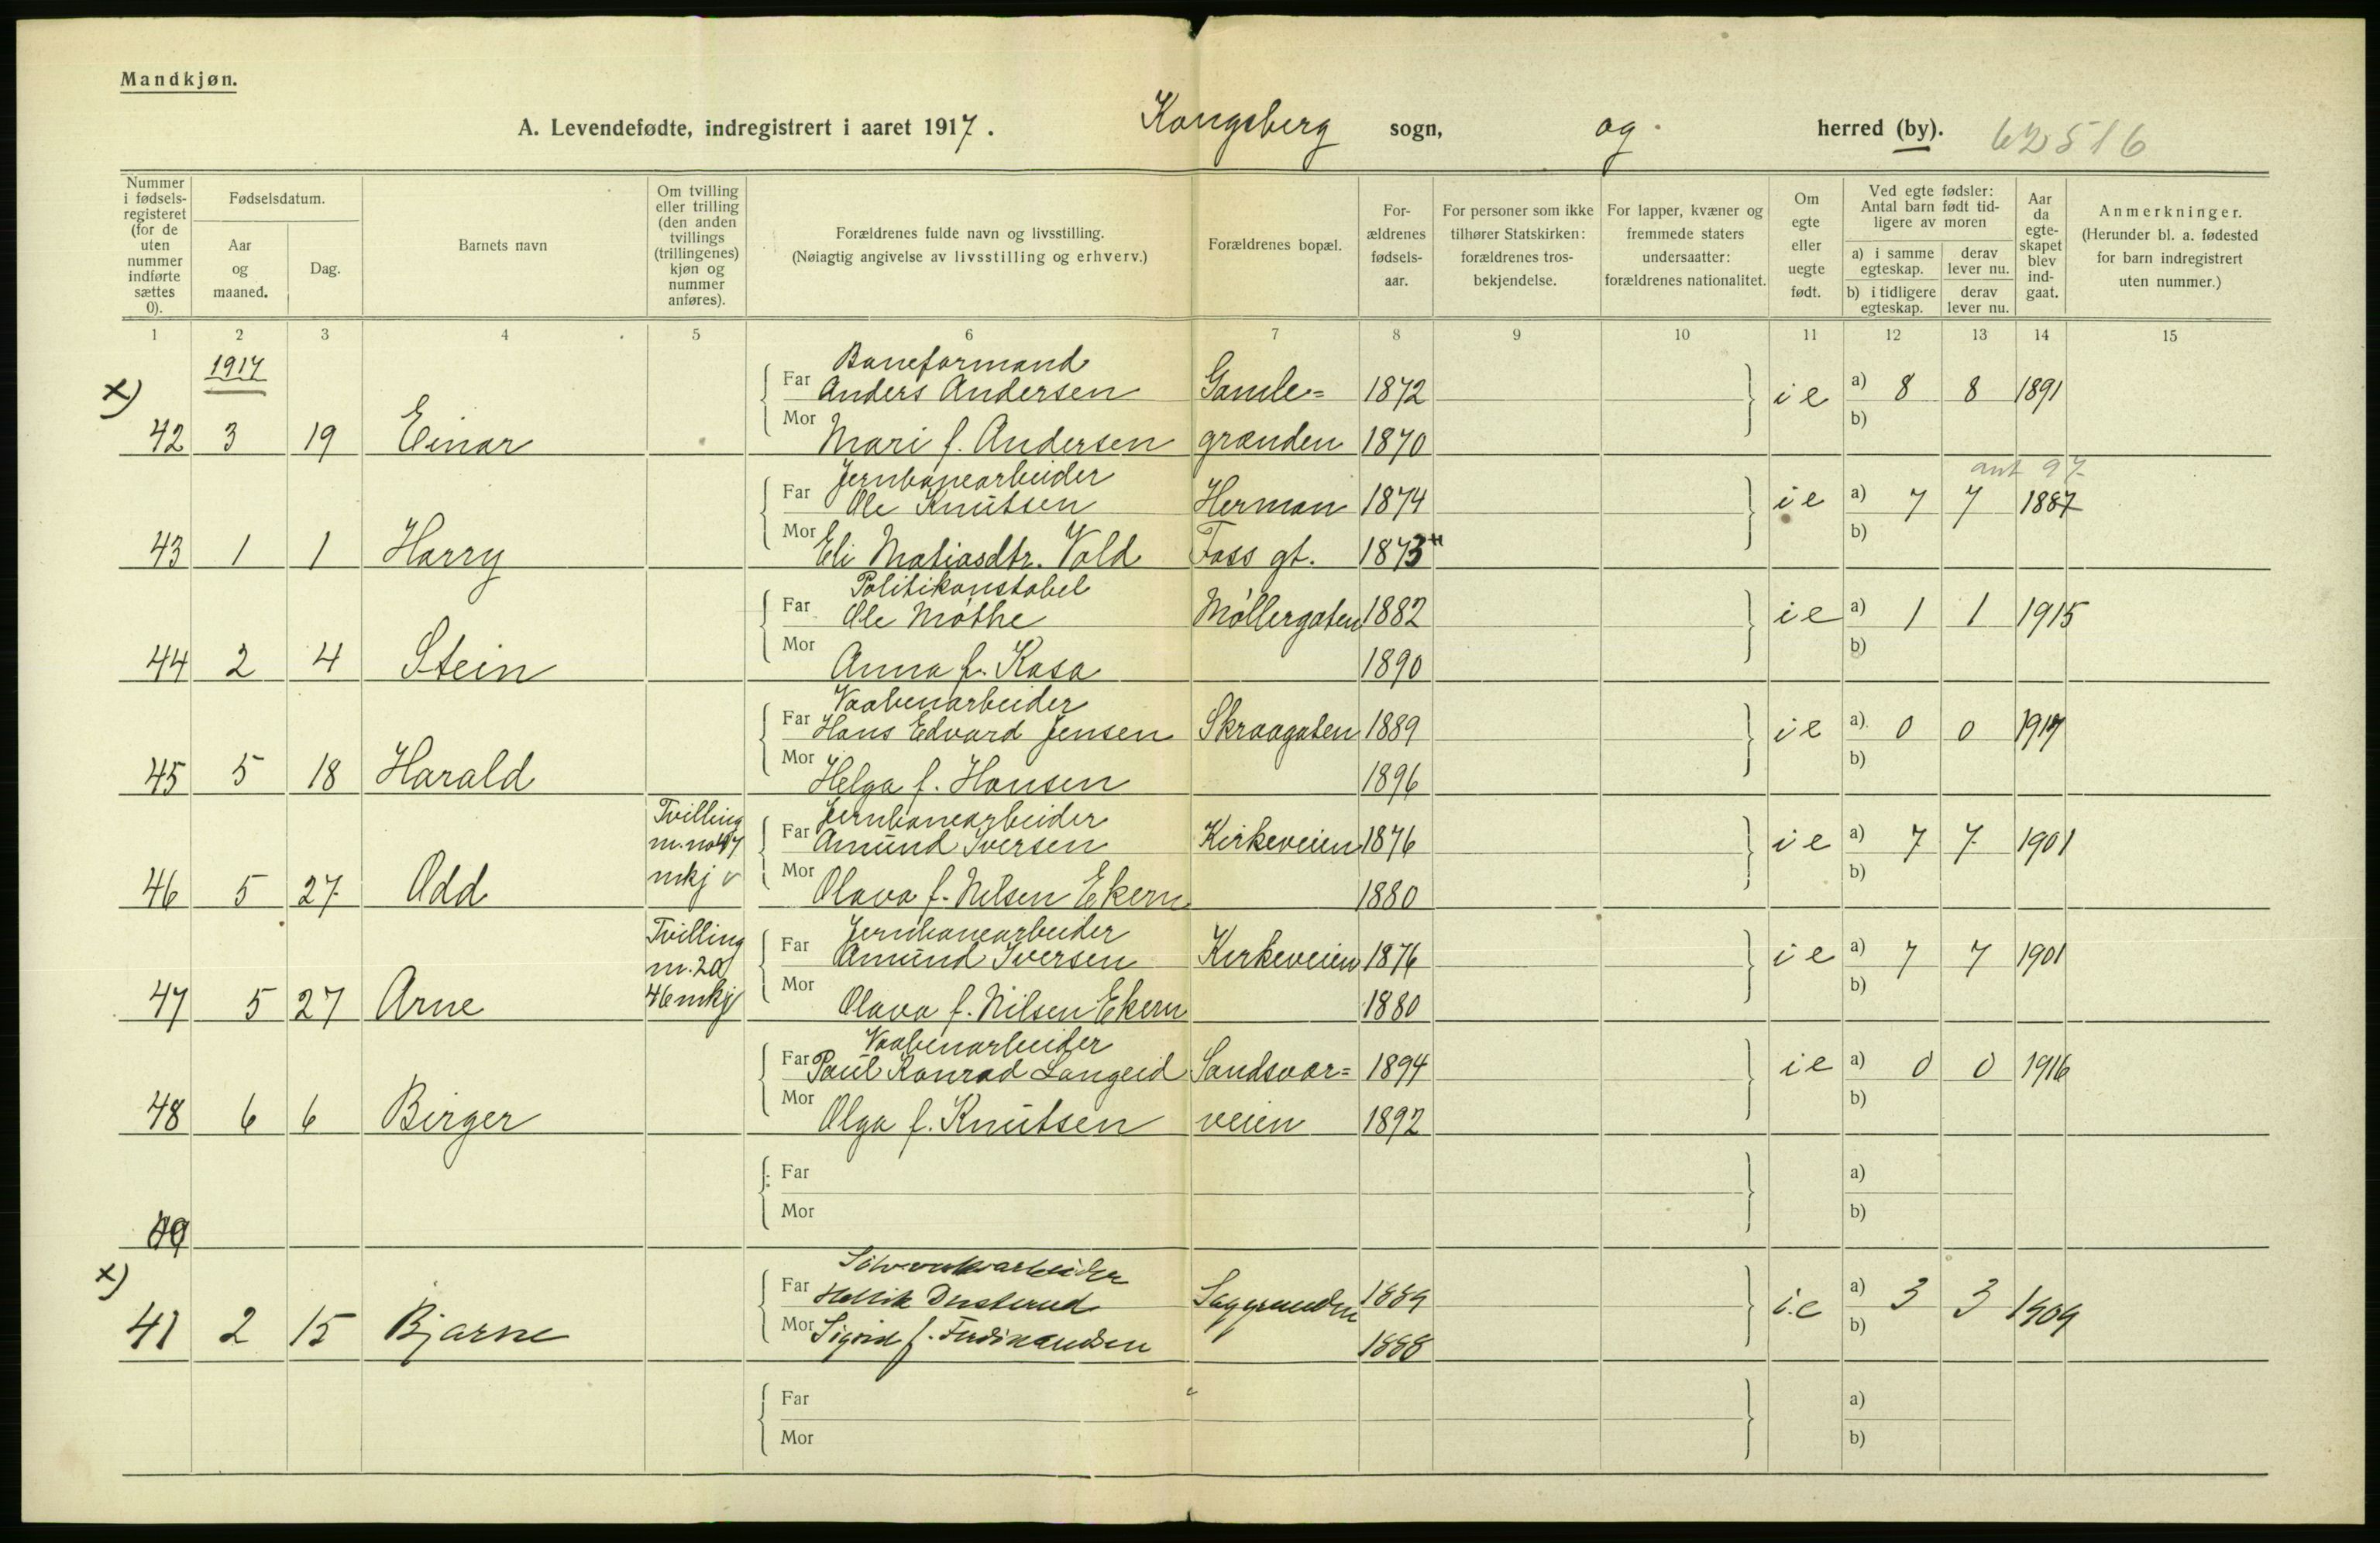 Mandkjøn.
A. Levendefødte, indregistrert i aaret 1917. Kongsberg sogn, og herred (by). 62516
Nummer i fødselsregisteret (for de uten nummer indførte sættes 0).
Fødselsdatum.
Aar og maaned.
Dag.
Barnets navn
Om tvilling eller trilling (den anden tvillings (trillingenes) kjøn og nummer anføres).
Forældrenes fulde navn og livsstilling.
(Nøiagtig angivelse av livsstilling og erhverv.)
Forældrenes bopæl.
Forældrenes fødselsaar.
For personer som ikke tilhører Statskirken: forældrenes trosbekjendelse.
For lapper, kvæner og fremmede staters undersaatter: forældrenes nationalitet.
Om egte eller uegte født.
Ved egte fødsler: Antal barn født tidligere av moren
a) i samme egteskap. derav lever nu.
b) i tidligere egteskap. derav lever nu.
Aar da egteskapet blev indgaat.
Anmerkninger.
(Herunder bl. a. fødested for barn indregistrert uten nummer.)
1 2 3 4 5 6 7 8 9 10 11 12 13 14 15
1917
Baneformand
x) Far Anders Andersen Gamle= 1872 ie a) 8 8 1891
42 3 19 Einar Mor Mari f. Andersen grænden 1870 b)
Jernbanearbeider ant 97
Far Ole Knutsen Herman 1874 ie a) 7 7 1887
43 1 1 Harry Mor Eli Matiasdtr. Vold Foss gt. 1873 b)
Politikonstabel
Far Ole Møthe Møllergaten 1882 ie a) 1 1 1915
44 2 4 Stein Mor Anna f. Kasa 1890 b)
Vaabenarbeider
Far Hans Edvard Jensen Skraagaten 1889 ie a) 0 0 1917
45 5 18 Harald Mor Helga f. Hansen 1896 b)
Tvilling Jernbanearbeider
m. no 47 Far Amund Iversen Kirkeveien 1876 ie a) 7 7 1901
46 5 27 Odd mkj v Mor Olava f. Nilsen Ekern 1880 b)
Tvilling Jernbanearbeider
Far Amund Iversen Kirkeveien 1876 ie a) 7 7 1901
47 5 27 Arne 46 mkj Mor Olava f. Nilsen Ekern 1880 b)
Vaabenarbeider
Far Paul Konrad Langeid Sandsvær= 1894 ie a) 0 0 1916
48 6 6 Birger Mor Olga f. Knutsen veien 1892 b)
Far a)
49 Mor b)
Sølvverksarbeider
x) Far 1889 i.e a) 3 3 1909
41 2 15 Bjarne Mor Sigrid f. Ferdinandsen 1888 b)
Far a)
Mor b)